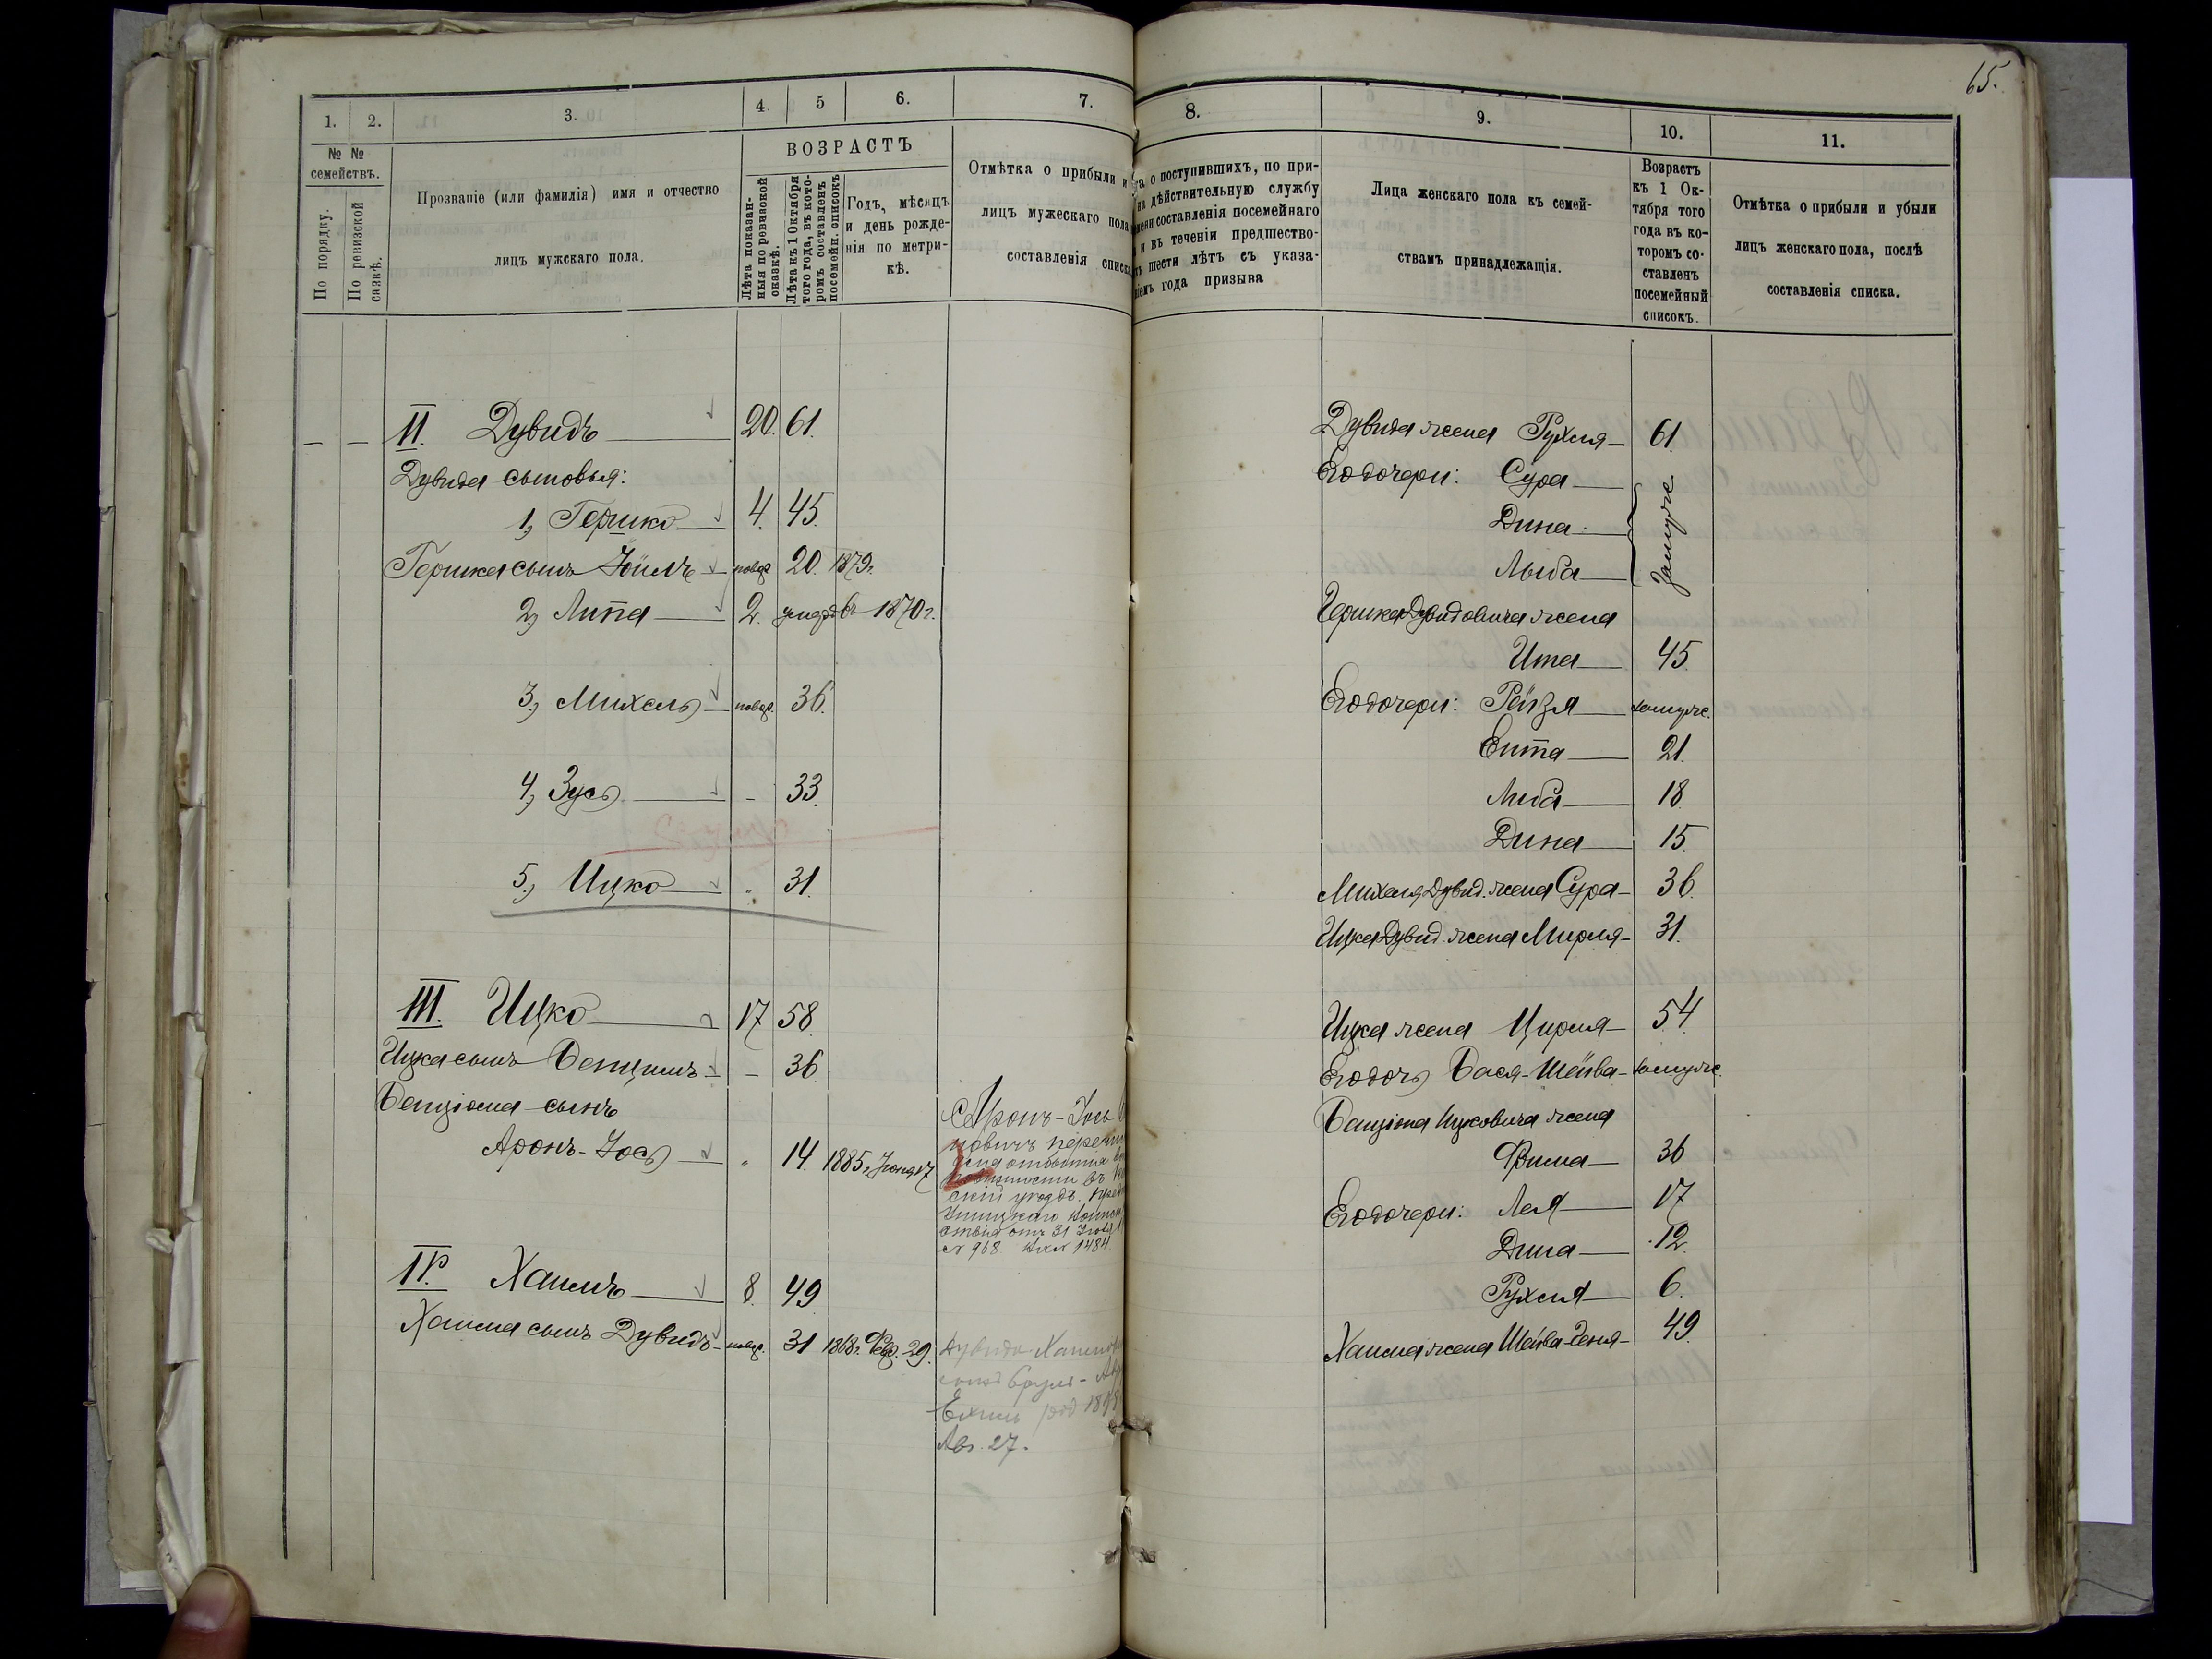 65.
1.
2.
3.
4.
5
6.
7.
8.
9.
10.
11.
№ №
семействъ.
По порядку.
По ревизской
сказкѣ.
Прозваніе (или фамилія) имя и отчество
лицъ мужскаго пола.
ВОЗРАСТЪ
Лѣта показан-
ныя по ревизской
сказкѣ.
Лѣта къ 1 Октября
того года, въ кото-
ромъ составленъ
посемейн. списокъ
Годъ, мѣсяцъ
и день рожде-
нія по метри-
кѣ.
Отмѣтка о прибыли и
лицъ мужескаго пола
составленія списка
о поступившихъ, по при-
на дѣйствительную службу
составленія посемейнаго
и въ теченіи предшество-
шести лѣтъ съ указа-
ніемъ года призыва
Лица женскаго пола къ семей-
ствамъ принадлежащія.
Возрастъ
къ 1 Ок-
тября того
года въ ко-
торомъ со-
ставленъ
посемейный
списокъ.
Отмѣтка о прибыли и убыли
лицъ женскаго пола, послѣ
составленія списка.
— — II. Дувидъ — 20. 61.
Дувида сыновья:
1, Гершко — 4. 45.
Гершка сынъ Іоилъ — новор. 20. 1879г.
2, Липа — 2. умеръ въ 1870г.
3, Михель — новор. 36.
4, Зусь — - 33.
5, Ицко — " 31.
III. Ицко — 17 58.
Ицка сынъ Бенціонъ — - 36
Бенціона сынъ
Аронъ-Іось — " 14. 1885г. Іюня 17
Аронъ-Іось
повинности въ
скій уѣздъ.
отъ 31
№ 968. 1484.
IV. Хаимъ — 8. 49
Хаима сынъ Дувидъ — новор. 31 1868г. Фев. 29.
Дувида
сынъ Сруль-
род 189
Авг. 27.
Дувида жена Рухля — 61.
Его дочери: Сура —
Дина —
Лыба —
Замужс.
Гершка Дувидовича жена
Ита — 45.
Его дочери: Рейзя — замужс.
Ента — 21.
Лыба — 18.
Дина — 15.
Михеля Дувид. жена Сура — 36.
Ицка Дувид. жена Мирля — 31.
Ицка жена Цирля — 54.
Его дочь Бася-Шейва — замужс.
Банціона Ицковича жена
Фрима — 36
Его дочери: Лея — 17
Дина — 12.
Рухля — 6.
Хаима жена Шейва-Геня — 49.